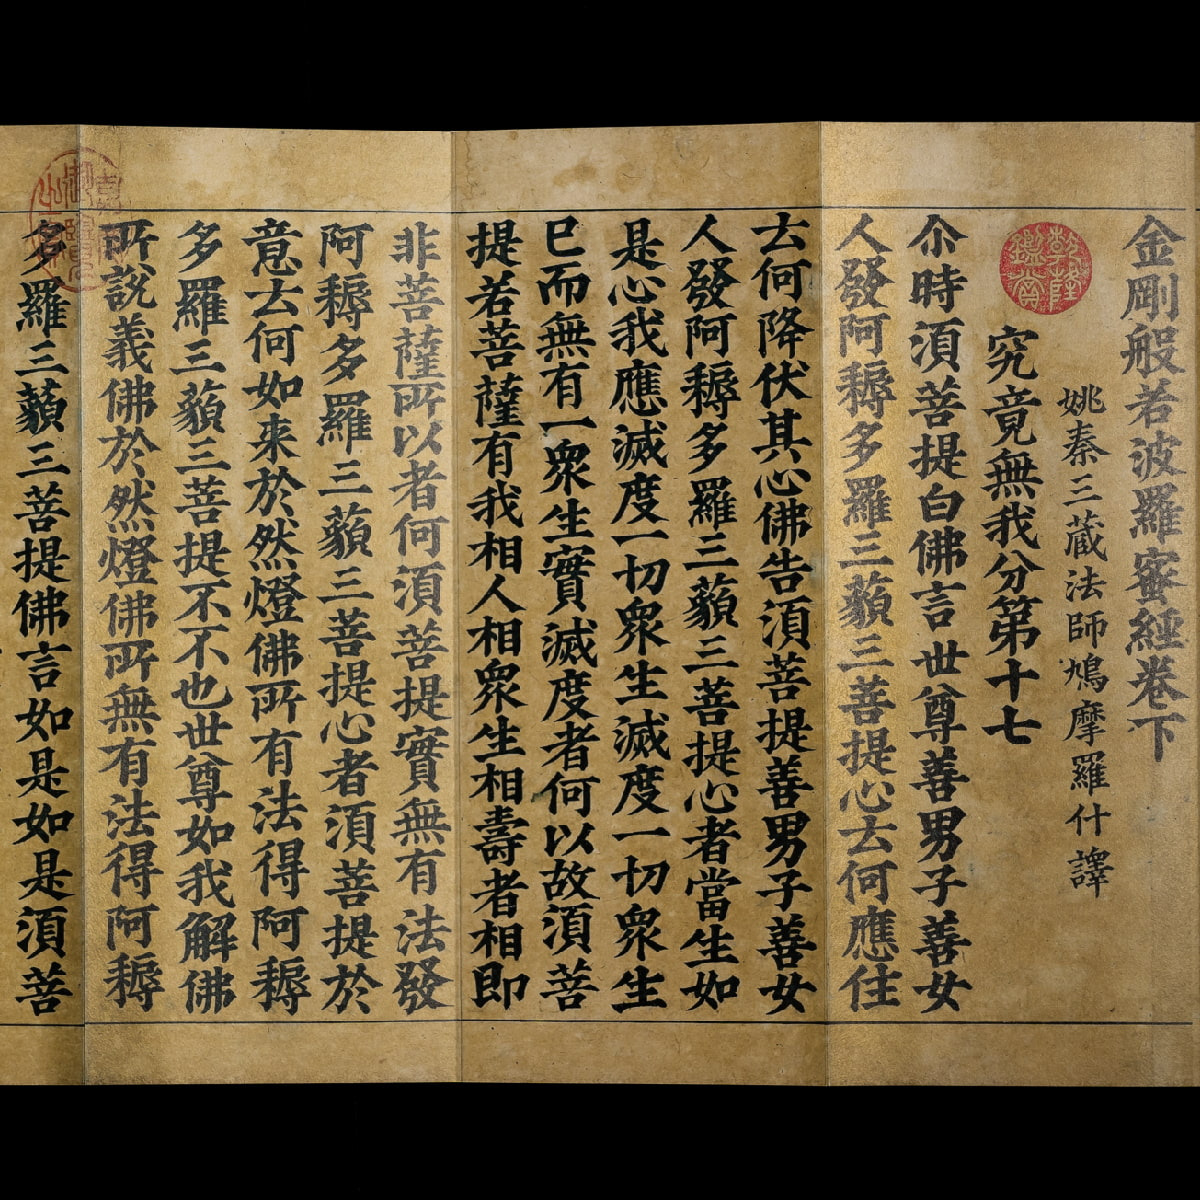 金剛般若波羅蜜經卷下
姚秦三藏法師鳩摩羅什譯
乾隆鑑賞
究竟無我分第十七
尒時湏菩提白佛言世尊善男子善女
人發阿耨多羅三藐三菩提心去何應住
去何降伏其心佛告湏菩提善男子善女
人發阿耨多羅三藐三菩提心者當生如
是心我應滅度一切衆生滅度一切衆生
巳而無有一衆生實滅度者何以故湏菩
提若菩薩有我相人相衆生相壽者相即
非菩薩所以者何湏菩提實無有法發
阿耨多羅三藐三菩提心者湏菩提於
意去何如来於然燈佛所有法得阿耨
多羅三藐三菩提不不也世尊如我解佛
所說義佛於然燈佛所無有法得阿耨
多羅三藐三菩提佛言如是如是湏菩